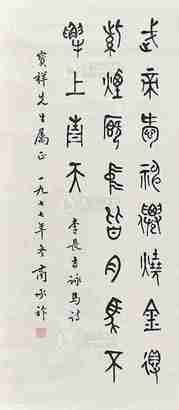 武帝愛神僊燒金得
紫煙廄中皆肉馬不
解上青天
李長吉詠馬詩
寶祥先生属正 一九七七年冬商承祚